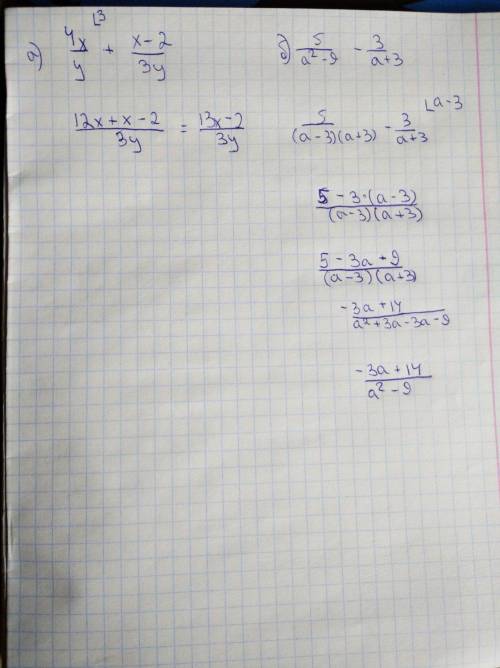 а) 4x/y [3 + x-2/3y
12x+x-2/3y = 13x-2/3y
б) 5/a²-9 - 3/a+3
5/(a-3)(a+3) - 3/a+3 [a-3
5-3·(a-3)/(a-3)(a+3)
5-3a+9/(a-3)(a+3)
-3a+14/a²+3a-3a-9
-3a+14/a²-9